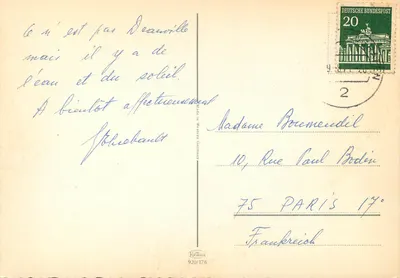 Ce n'est pas Deauville
mais il y a de
l'eau et du soleil.
A bientôt affectueusement
DEUTSCHE BUNDESPOST
20
2
Madame Boumendil
10, Rue Paul Bodin
75 PARIS 17°
Frankreich